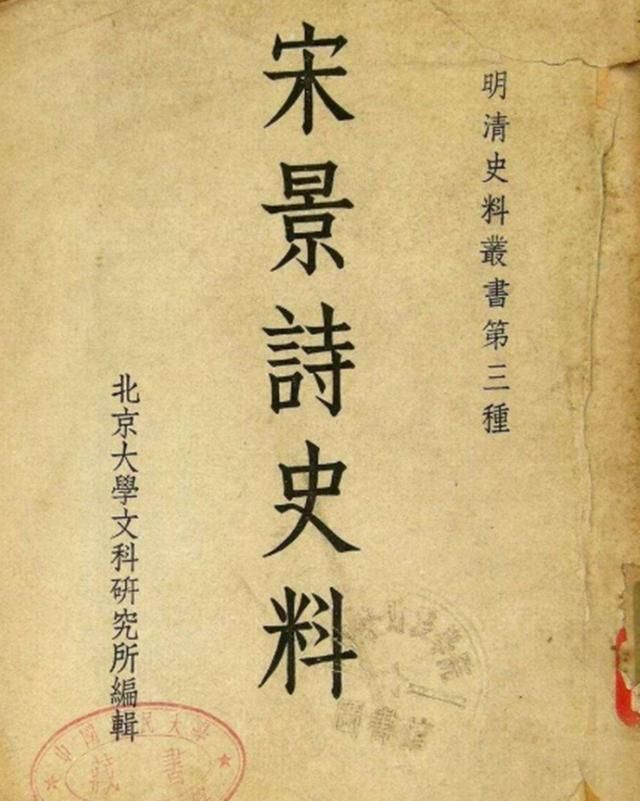 明清史料叢書第三種
宋景詩史料
北京大學文科研究所編輯
中國人民大學
藏書